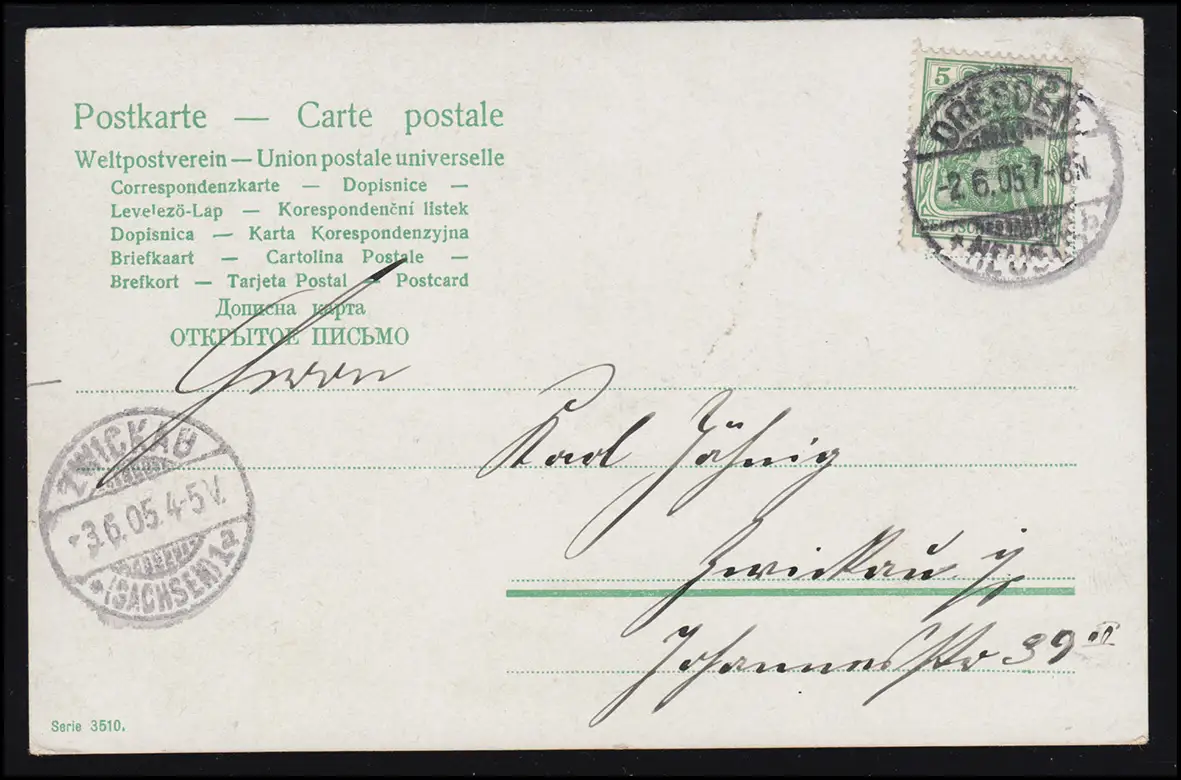 Postkarte — Carte postale
Weltpostverein — Union postale universelle
Correspondenzkarte — Dopisnice —
Levelező-Lap — Korespondenční listek
Dopisnica — Karta Korespondenzyjna
Briefkaart — Cartolina Postale —
Brefkort — Tarjeta Postal — Postcard
Дописна карта
ОТКРЫТОЕ ПИСЬМО
5
DRESDEN
-2.6.05 7-8N
DEUTSCHES
* NEUST. b
Herrn
Karl Jähnig
Zwickau i/
Johannesstr 39 II
ZWICKAU
-3.6.05.4-5V.
*(SACHSEN)1a
Serie 3510.